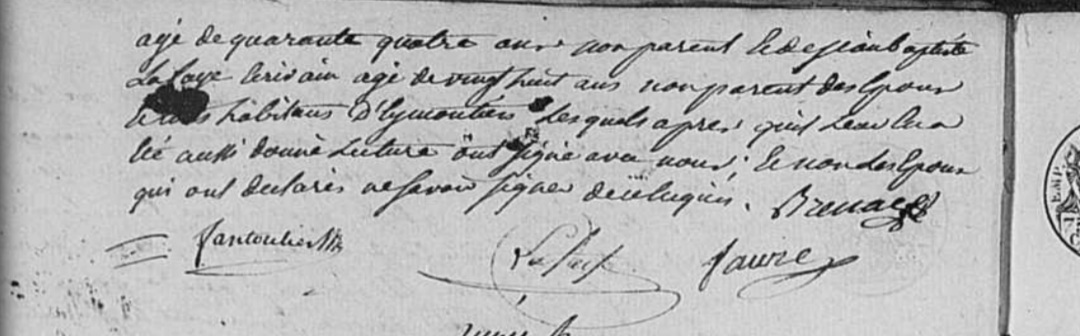 agé de quarante quatre ans non parent et de jean baptiste
La faye Ecrivain agé de vingt huit ans non parent des Epoux
habitans D'Eymoutiers Lesquels apres qu'il Leur En a
Eté aussi donné Lecture ont signé avec nous, Et non des Epoux
qui ont declarés ne savoir signer de ce Requis.
faure
EMP